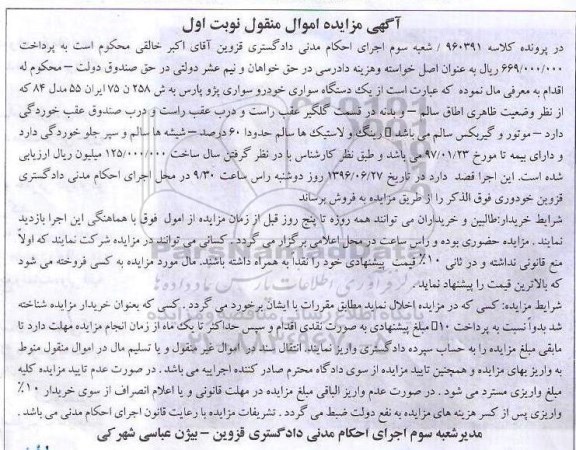 آگهی مزایده اموال منقول نوبت اول
در پرونده کلاسه ۹۶۰۳۹۱ / شعبه سوم اجرای احکام مدنی دادگستری قزوین آقای اکبر خالقی محکوم است به پرداخت
۶۶۹/۰۰۰/۰۰۰ ریال به عنوان اصل خواسته وهزینه دادرسی در حق خواهان و نیم عشر دولتی در حق صندوق دولت – محکوم له
اقدام به معرفی مال نموده که عبارت است از یک دستگاه سواری خودرو سواری پژو پارس به ش ۲۵۸ ن ۷۵ ایران ۵۵ مدل ۸۴ که
از نظر وضعیت ظاهری اطاق سالم – و بدنه در قسمت گلگیر عقب راست و درب عقب راست و درب صندوق عقب خوردگی
دارد – موتور و گیربکس سالم می باشد رینگ و لاستیک ها سالم حدودا ۶۰ درصد – شیشه ها سالم و سپر جلو خوردگی دارد
و دارای بیمه تا مورخ ۹۷/۰۱/۲۳ می باشد و طبق نظر کارشناس با در نظر گرفتن سال ساخت ۱۲۵/۰۰۰/۰۰۰ میلیون ریال ارزیابی
شده است. این اجرا قصد دارد در تاریخ ۱۳۹۶/۰۶/۲۷ روز دوشنبه راس ساعت ۹/۳۰ در محل اجرای احکام مدنی دادگستری
قزوین خودوری فوق الذکر را از طریق مزایده به فروش برساند
شرایط خریدار:طالبین و خریداران می توانند همه روزه تا پنج روز قبل از زمان مزایده از امول فوق با هماهنگی این اجرا بازدید
نمایند . مزایده حضوری بوده و راس ساعت در محل اعلامی برگزار می گردد . کسانی می توانند در مزایده شرکت نمایند که اولاً
منع قانونی نداشته و در ثانی ۱۰٪ قیمت پیشنهادی خود را نقدا به همراه داشته باشند. مال مورد مزایده به کسی فروخته می شود
که بالاترین قیمت را پیشنهاد نماید.
شرایط مزایده: کسی که در مزایده اخلال نماید مطابق مقررات با ایشان برخورد می گردد . کسی که بعنوان خریدار مزایده شناخته
شد بدواً نسبت به پرداخت ۱۰ مبلغ پیشنهادی به صورت نقدی اقدام و سپس حداکثر تا یک ماه از زمان انجام مزایده مهلت دارد تا
مابقی مبلغ مزایده را به حساب سپرده دادگستری واریز نمایند. انتقال سند در اموال غیر منقول و یا تسلیم مال در اموال منقول منوط
به واریز بهای مزایده و همچنین تایید مزایده از سوی دادگاه محترم صادر کننده اجراییه می باشد . در صورت عدم تایید مزایده کلیه
مبلغ واریزی مسترد می شود . در صورت عدم واریز الباقی مبلغ مزایده در مهلت قانونی و یا اعلام انصراف از سوی خریدار ۱۰٪
واریزی پس از کسر هزینه های مزایده به نفع دولت ضبط می گردد . تشریفات مزایده با رعایت قانون اجرای احکام مدنی می باشد .
مدیرشعبه سوم اجرای احکام مدنی دادگستری قزوین – بیژن عباسی شهرکی